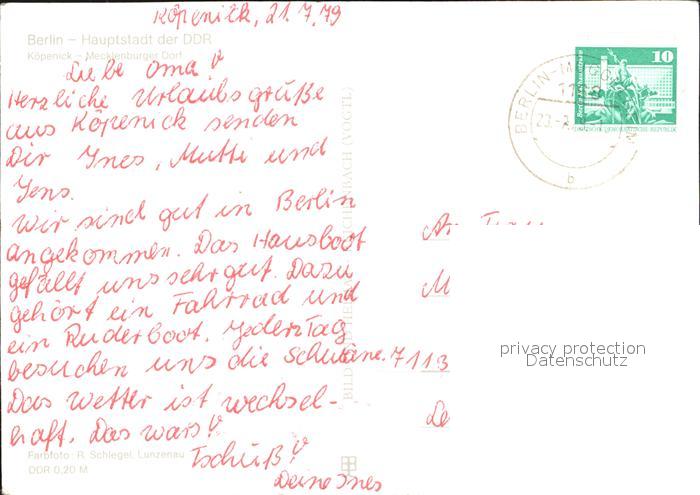 Köpenick, 21.7.79
Berlin – Hauptstadt der DDR
Köpenick – Mecklenburger Dorf
Liebe Oma!
Herzliche Urlaubsgrüße
aus Köpenick senden
Dir Ines, Mutti und
Jens.
Wir sind gut in Berlin
angekommen. Das Hausboot
gefällt uns sehr gut. Dazu
gehört ein Fahrrad und
ein Ruderboot. Jeden Tag
besuchen uns die Schwäne.
Das Wetter ist wechsel-
haft. Das wars!
Tschüß!
Deine Ines
Farbfoto: R. Schlegel, Lunzenau
DDR 0,20 M
10
M
7113
privacy protection
Datenschutz